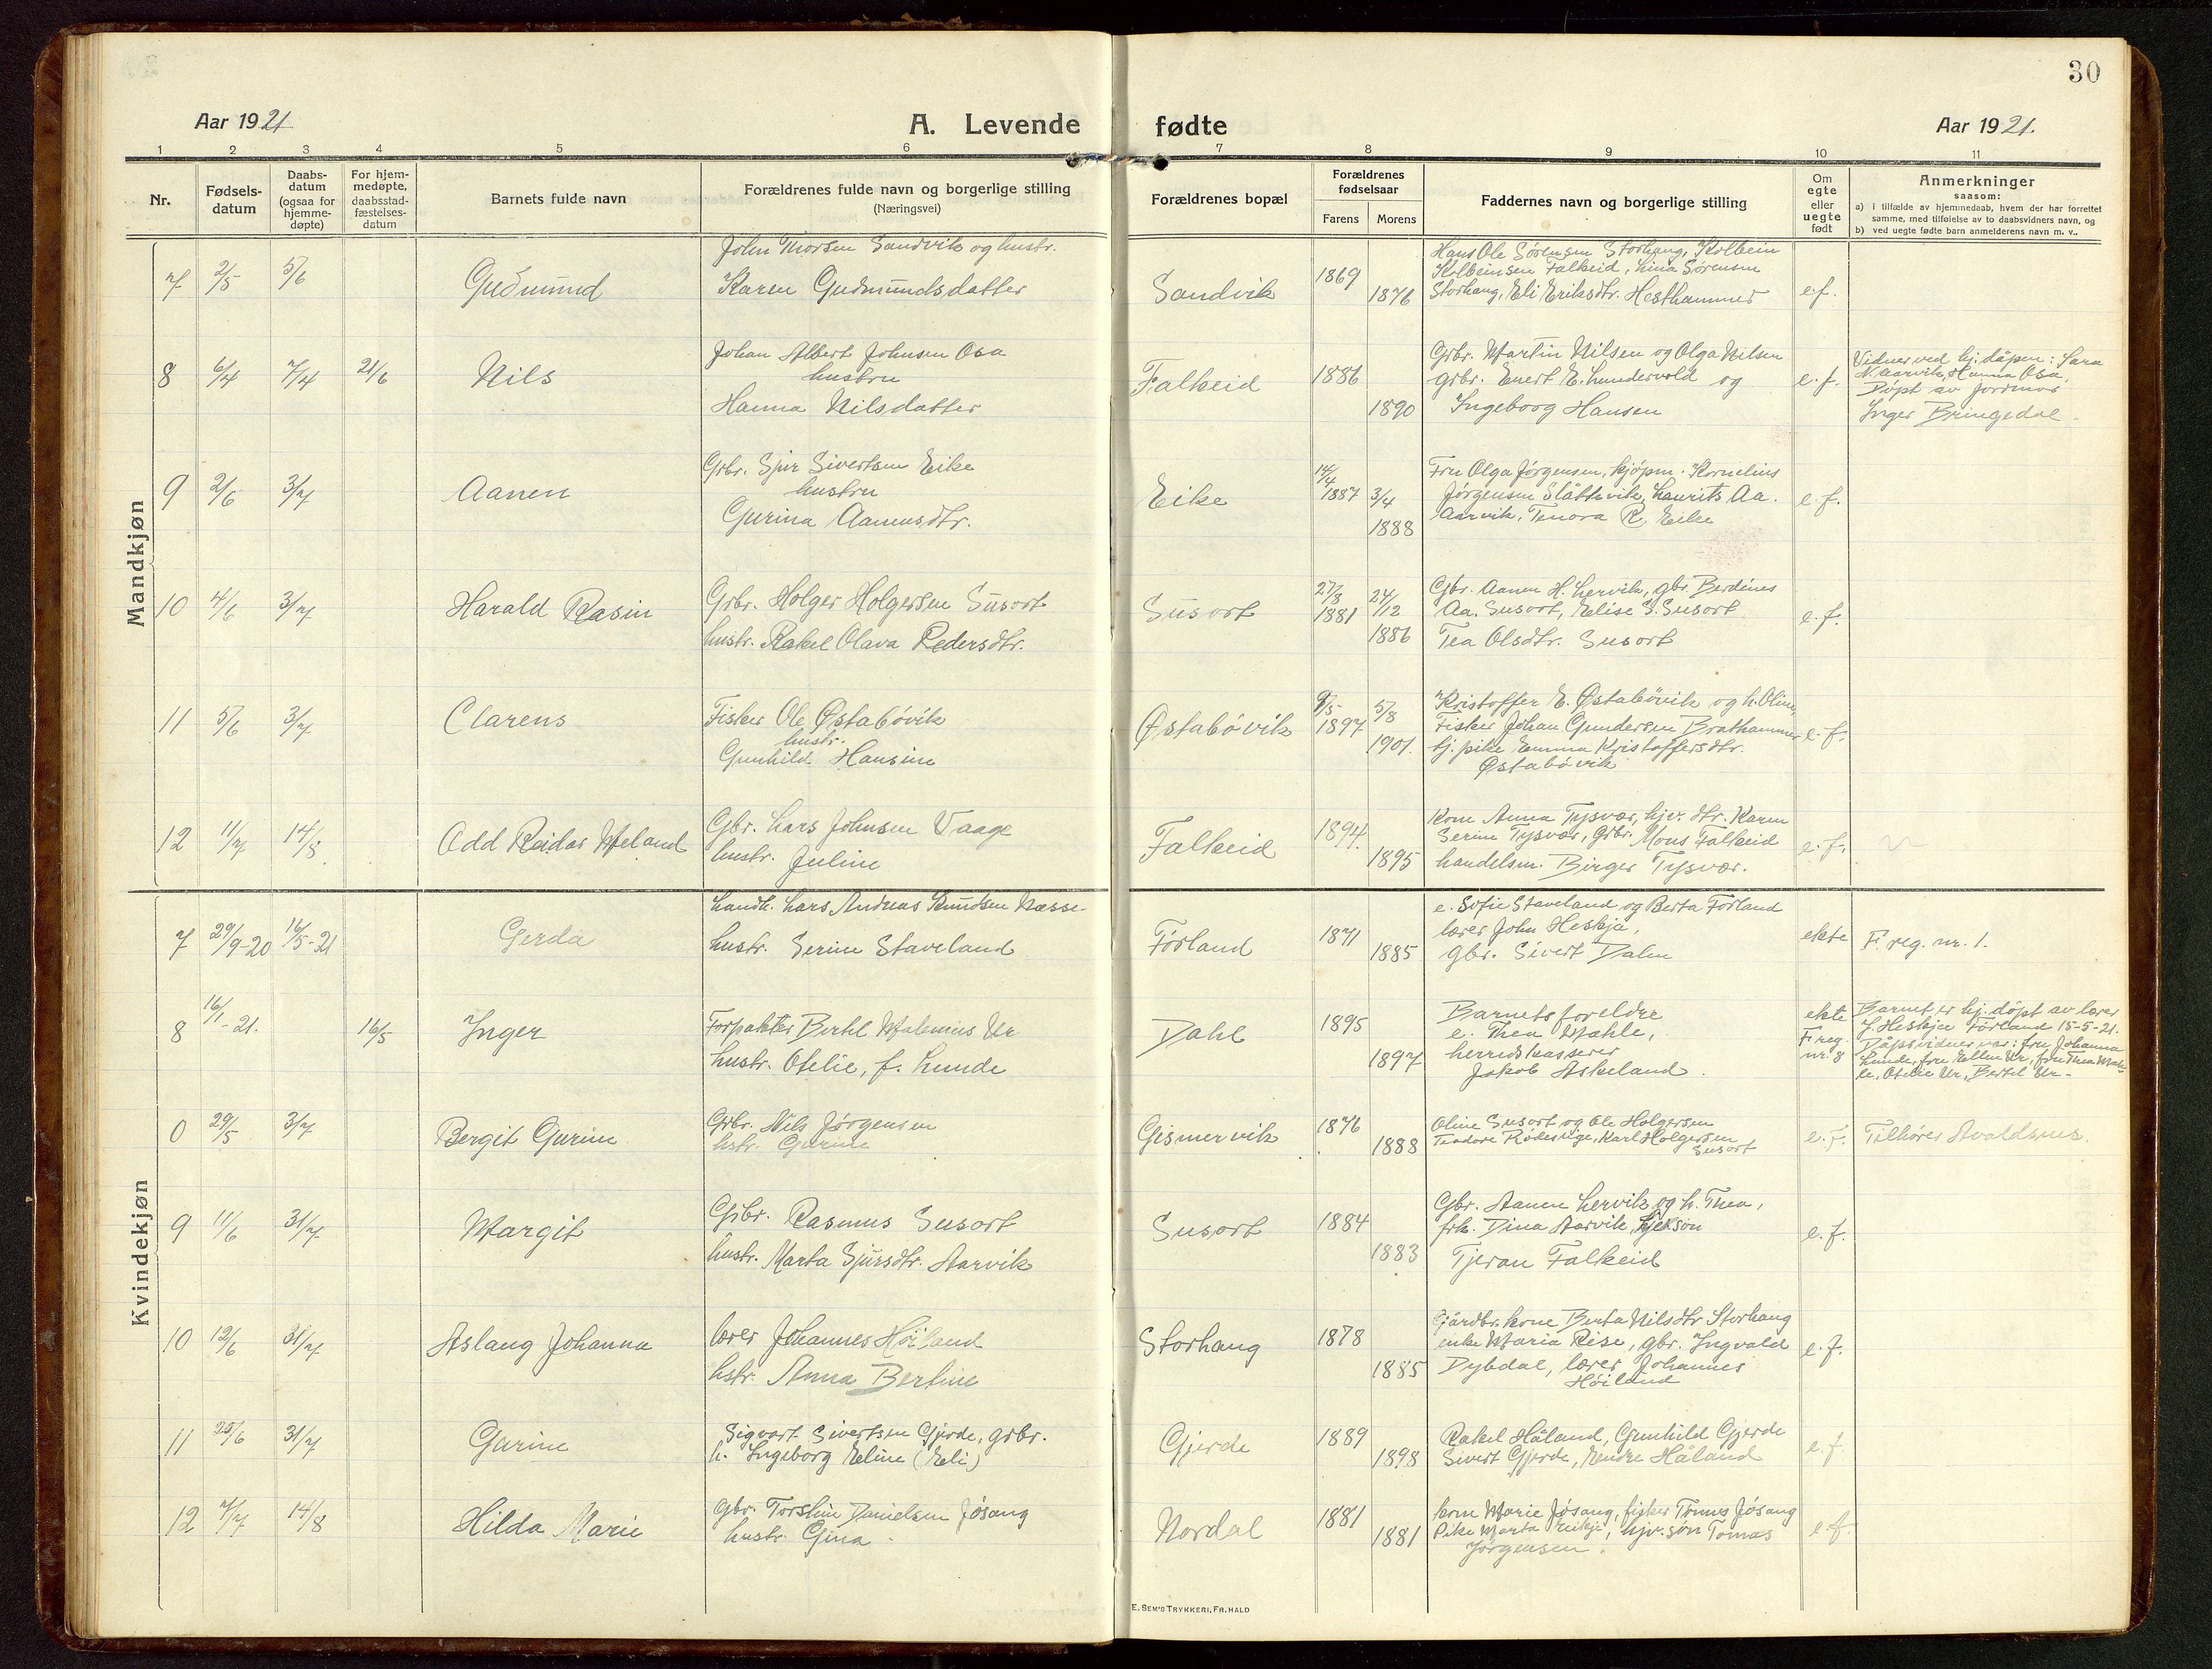 30
Aar 1921
A. Levende fødte
Aar 1921.
1 2 3 4 5 6 7 8 9 10 11
Nr.
Fødsels-
datum
Daabs-
datum
(ogsaa for
hjemme-
døpte)
For hjem-
medøpte,
daabsstad-
fæstelses-
datum
Barnets fulde navn
Forældrenes fulde navn og borgerlige stilling
(Næringsvei)
Forældrenes bopæl
Forældrenes
fødselsaar
Farens Morens
Faddernes navn og borgerlige stilling
Om
egte
eller
uegte
født
Anmerkninger
saasom:
a) i tilfælde av hjemmedaab, hvem der har forrettet
samme, med tilføielse av to daabsvidners navn, og
b) ved uegte fødte barn anmelderens navn m. v..
Mandkjøn
7 2/5 5/6 Gudmund
John Thorsen Sandvik og hustr.
Karen Gudmundsdatter
Sandvik 1869 1876
Hans Ole Sørensen Storhaug, Kolbein
Kolbeinsen Falkeid, Lina Sørensen
Storhaug, Eli Eriksdtr. Hesthammer
e.f.
8 6/4 7/4 21/6 Nils
Johan Albert Johnsen Osa
hustru
Hanna Nilsdatter
Falkeid 1886 1890
Grbr. Martin Nilsen og Olga Nilsen
grbr. Enert E. Lundervold og
Ingeborg Hansen
e.f.
Vidner ved hj. dåpen: Sara
N. Aarvik, Hanna Osa,
Døpt av jordmor
Inger Bringedal.
9 2/6 3/7 Aanen
Grbr. Sjur Sivertsen Eike
hustru
Gurina Aanensdtr.
Eike 14/4 1887 3/4 1888
Fru Olga Jørgensen, kjøpm. Kornelius
Jørgensen Slåttevik, Laurits Aa.
Aarvik, Tenora R. Eike
e.f.
10 4/6 3/7 Harald Rasin
Grbr. Holger Holgersen Susort
hustr. Rakel Olava Pedersdtr.
Susort 27/8 1881 24/12 1886
Gbr. Aanen H. Lervik, gbr. Berdines
Aa. Susort, Elise S. Susort
Tea Olsdtr. Susort
e.f.
11 5/6 3/7 Clarens
Fisker Ole Østabövik
hustr.
Gunhild Hansine
Østabövik 9/5 1897 5/8 1901.
Kristoffer E. Østabövik og h. Oline,
Fisker Johan Gundersen Brathammer
tj. pike Emma Kristoffersdtr.
Østabövik
e.f.
12 11/7 14/8 Odd Reidar Meland
Gbr. Lars Johnsen Vaage
hustr. Juline
Falkeid 1894. 1895
Kone Anna Tysvær, hjv. dtr. Karen
Serine Tysvær, Grbr. Mons Falkeid
handelsm. Birger Tysvær.
e.f.
Kvindekjøn
7 29/9-20 16/5-21 Gerda
Landh. Lars Andreas Knudsen Næsse
hustr. Serine Staveland
Førland 1871 1885
e. Sofie Staveland og Berta Førland
lærer John Heskja,
gbr. Sivert Dalen
ekte F. reg. nr. 1.
8 16/1-21. 16/5 Inger
Forpakter Bertel Malenius Ur
hustr. Otelie, f. Lunde
Dahl 1895 1897
Barnets foreldre
e. Thea Mahle,
herredskasserer
Jakob Askeland.
ekte
F reg
nr. 8
Barnet er hj. døpt av lærer
J. Heskja Førland 15-5-21.
Dåpsvidner var: fru Johanna
Lunde, fru Ellen Ur, fru Thea Mah-
le, Otelie Ur, Bertel Ur.
0 29/5 3/7 Bergit Gurine
Grbr. Nils Jørgensen
hstr. Gurine
Gismervik 1876 1888
Oline Susort og Ole Holgersen
Teodore Rødesvige, Karl Holgersen
Susort
e.f. Tilhører Avaldsnes.
9 11/6 31/7 Margit
Grbr. Rasmus Susort
hustr. Marta Sjursdtr. Aarvik
Susort 1884 1883
Gbr. Aanen Lervik og h. Thea,
frk. Dina Aarvik,
Tjeran Falkeid
e.f.
10 12/6 31/7 Aslaug Johanna
lærer Johannes Höiland
hstr. Anna Bertine
Storhaug 1878 1885
Gårdbr. kone Berta Nilsdtr Storhaug
enke Maria Rise, gbr. Ingvald
Dybdal, lærer Johannes
Höiland
e.f.
11 25/6 31/7 Gurine
Sigvart Sivertsen Gjerde, grbr.
h. Ingeborg Eline (Eli)
Gjerde 1889 1898
Rakel Håland, Gunhild Gjerde
Sivert Gjerde, Endre Håland
e.f.
12 7/7 14/8 Hilda Marie
Gbr. Torstein Danielsen Jøsang
hustr. Gina.
Nordal 1881 1881
kone Marie Jøsang, fisker Tønnes Jøsang
Pike Marta Eikje, hjv. søn Tomas
Jørgensen.
e.f.
E. SEM'S TRYKKERI, FR.HALD